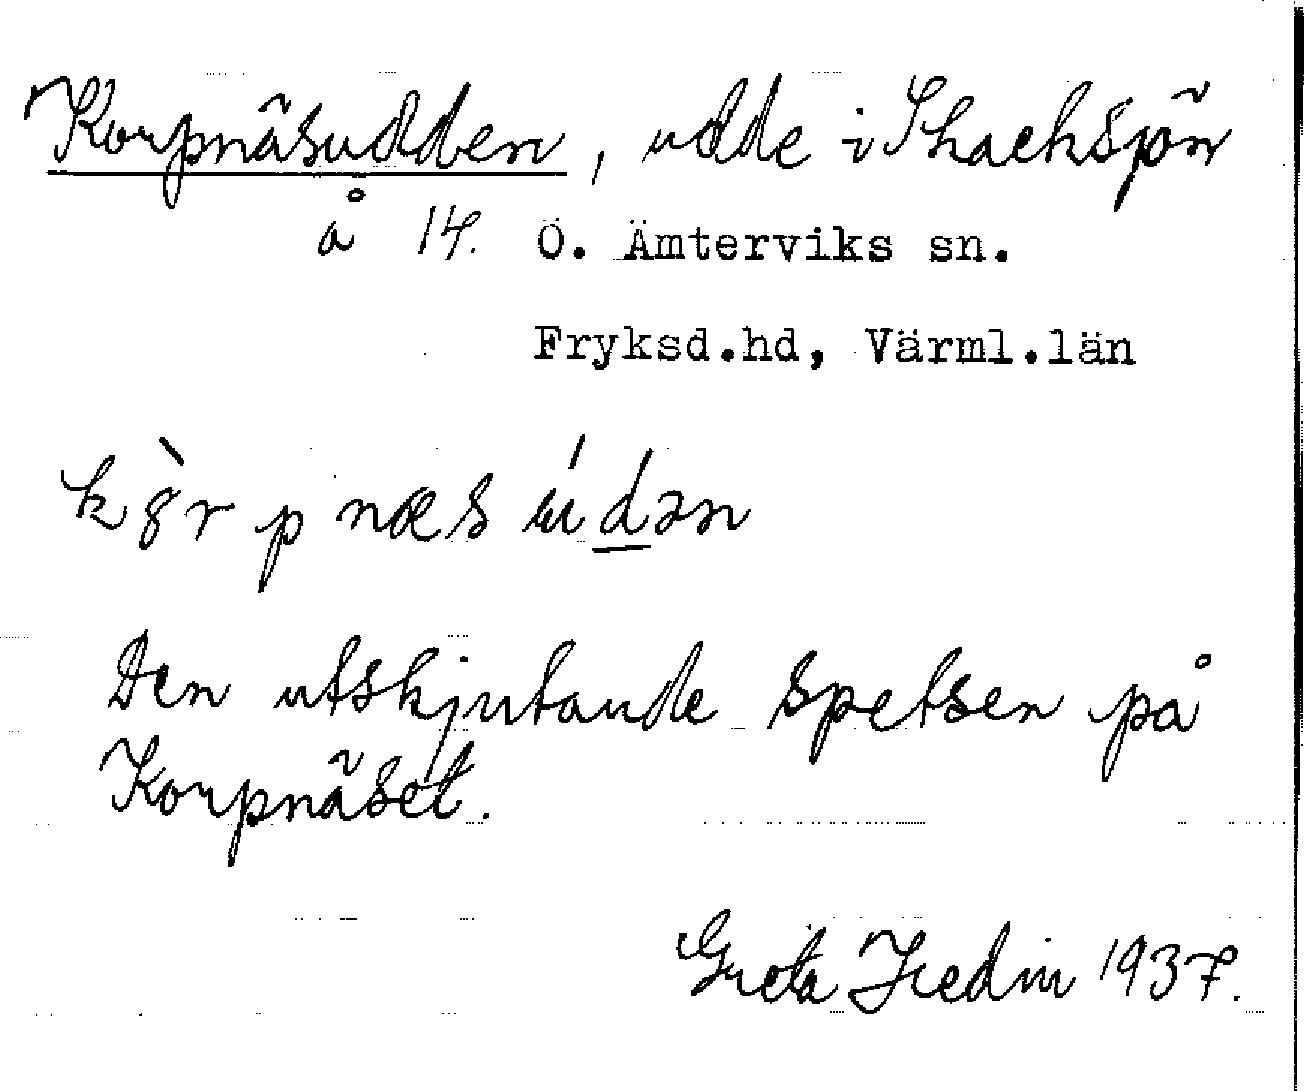 Korpnäsudden, udde i Skacksjön
å 14. Ö. Ämterviks sn.
Fryksd.hd, Värml.län
kȣ̀rpnæsúdən
Den utskjutande spetsen på
Korpnäset.
Greta Hedin 1937.